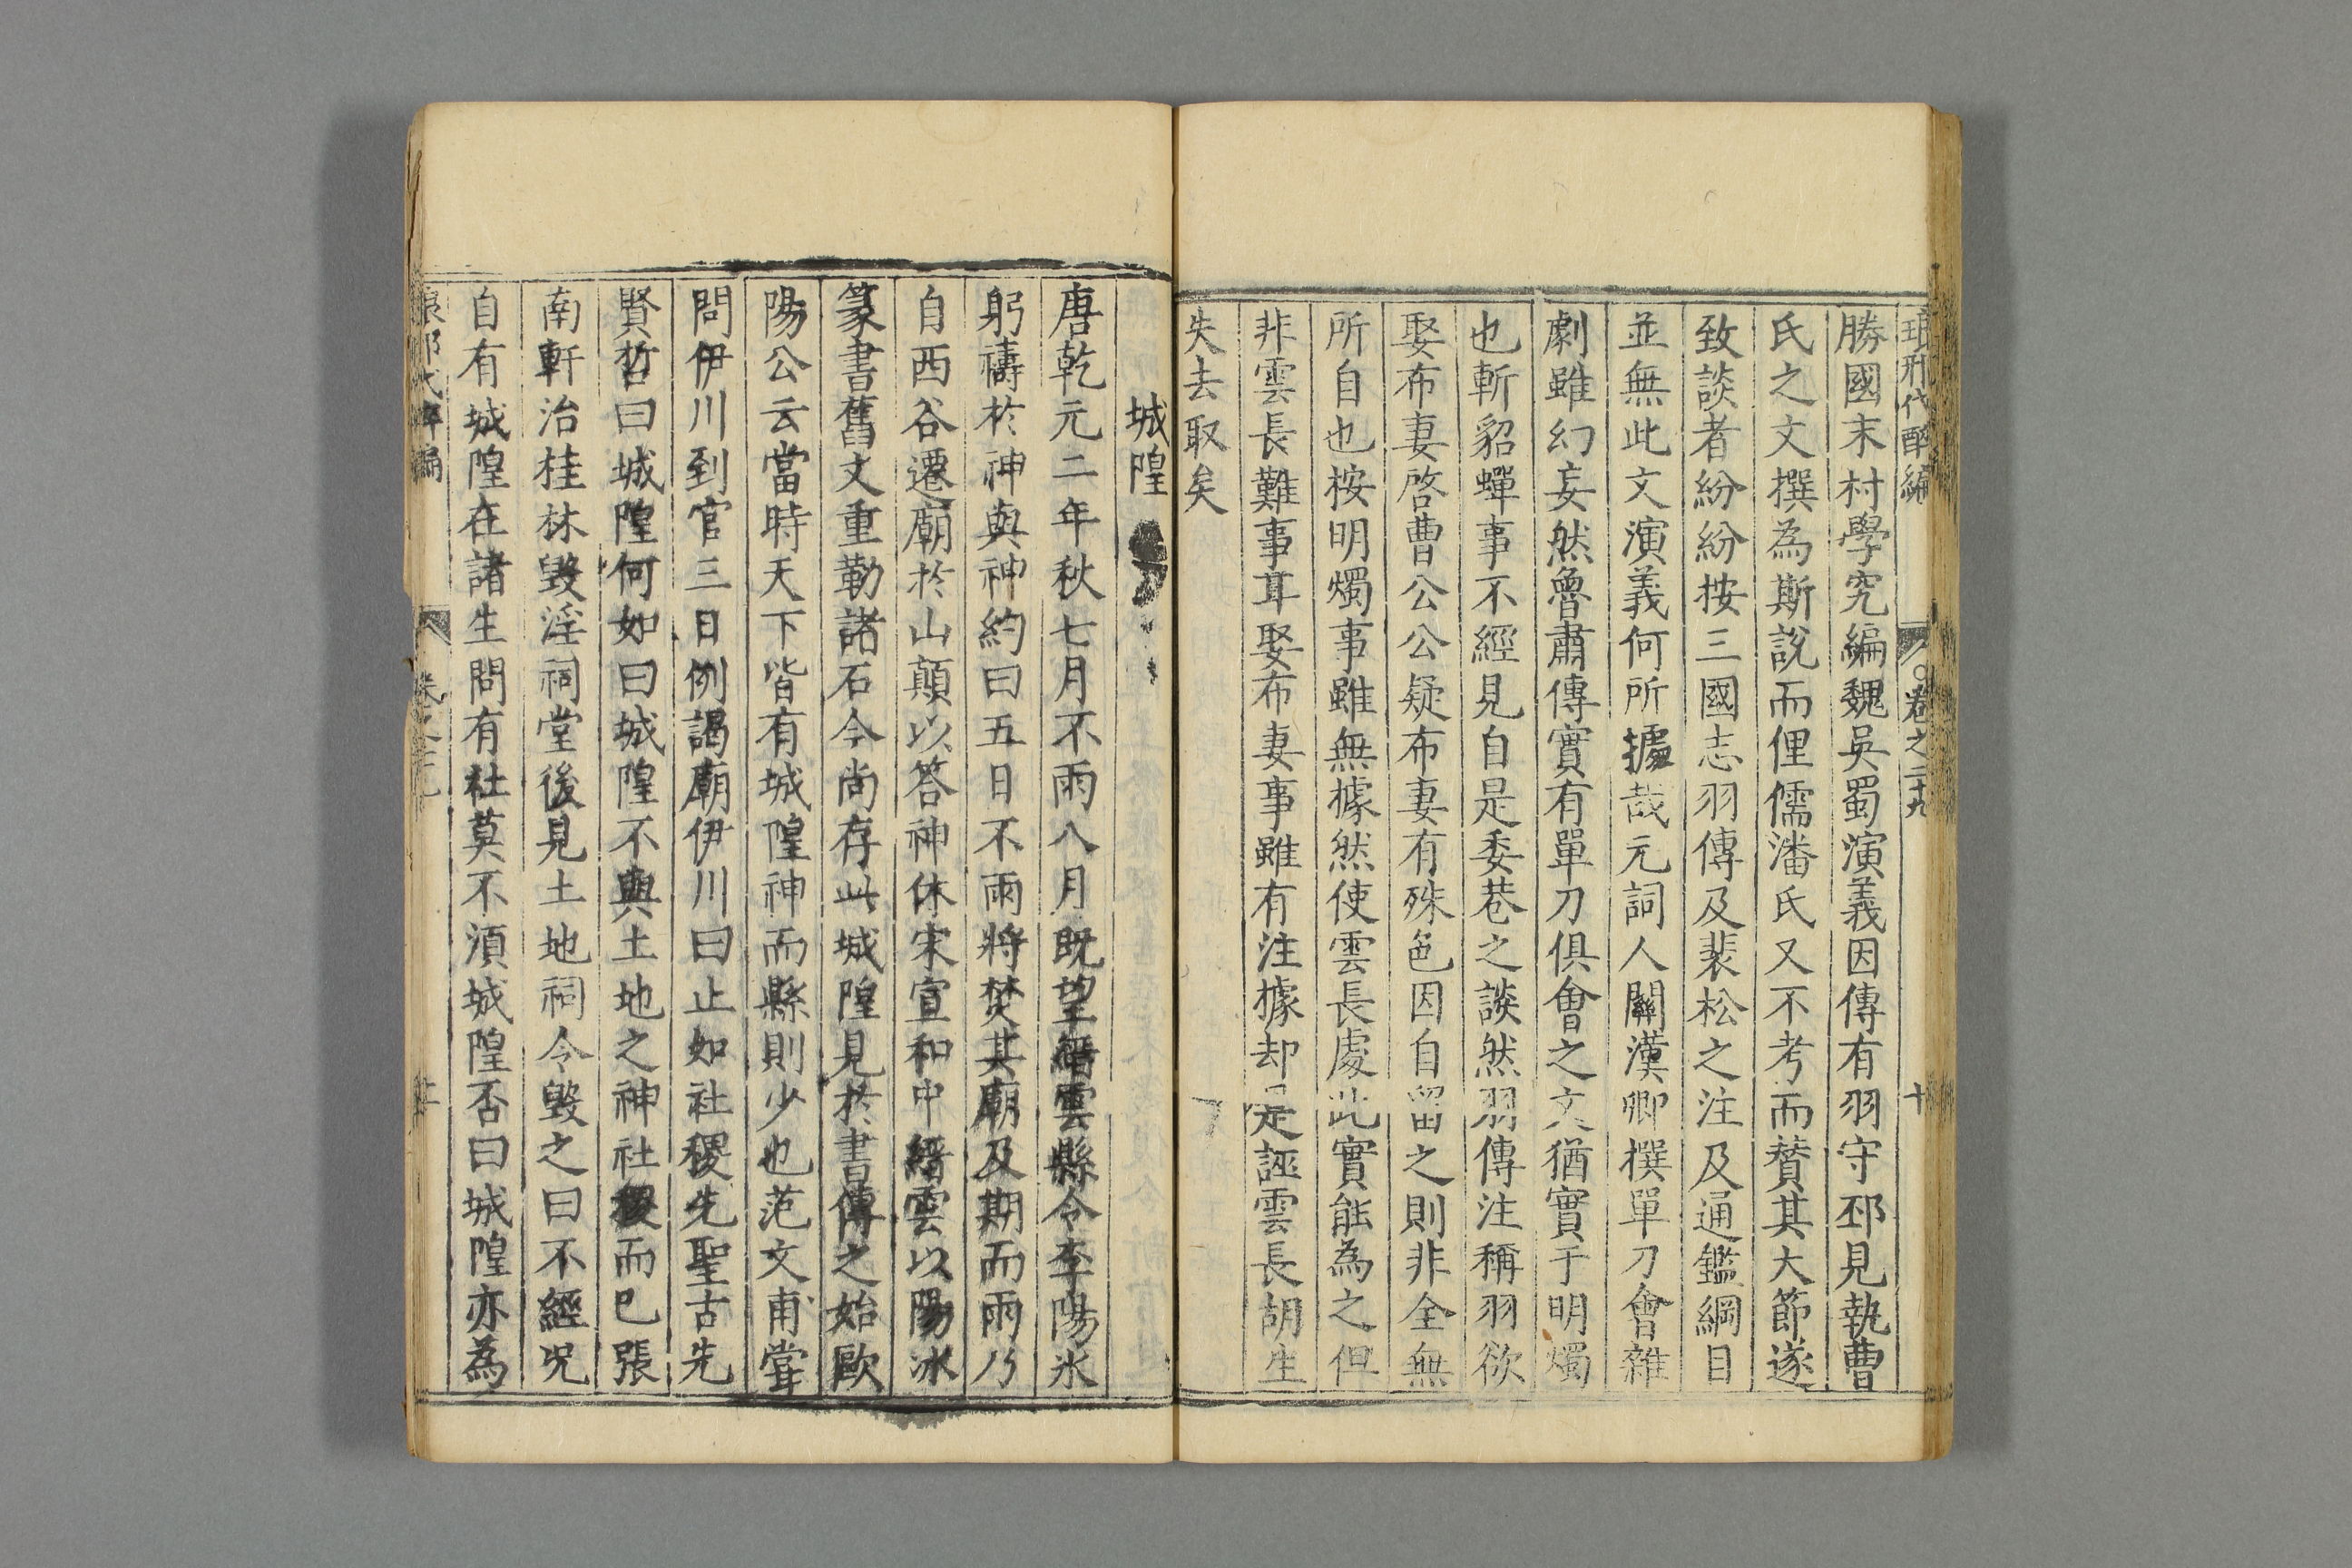 琅邪代醉編 卷之二十九 十
勝國末村學究編魏吳蜀演義因傳有羽守邳見執曹
氏之文撰為斯說而俚儒潘氏又不考而贊其大節遂
致談者紛紛按三國志羽傳及裴松之注及通鑑綱目
並無此文演義何所據哉元詞人關漢卿撰單刀會雜
劇雖幻妄然魯肅傳實有單刀俱會之文猶實于明燭
也斬貂蟬事不經見自是委巷之談然羽傳注稱羽欲
娶布妻啓曹公公疑布妻有殊色因自留之則非全無
所自也按明燭事雖無據然使雲長處此實能為之但
非雲長難事耳娶布妻事雖有注據却是誣雲長胡生
失去取矣
城隍
唐乾元二年秋七月不雨八月既望縉雲縣令李陽氷
躬禱於神與神約曰五日不雨將焚其廟及期而雨乃
自西谷遷廟於山顛以答神休宋宣和中縉雲以陽冰
篆書舊文重勒諸石今尚存此城隍見於書傳之始歐
陽公云當時天下皆有城隍神而縣則少也范文甫甞
問伊川到官三日例謁廟伊川曰止如社稷先聖古先
賢哲曰城隍何如曰城隍不典土地之神社稷而巳張
南軒治桂林毀淫祠堂後見土地祠令毀之曰不經況
自有城隍在諸生問有社莫不須城隍否曰城隍亦為
代醉編